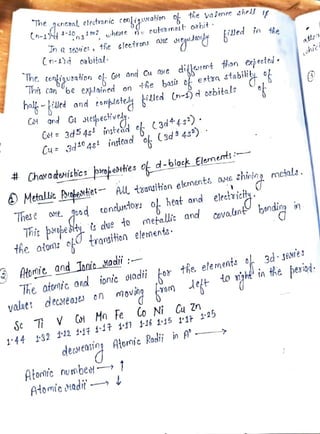 The general electronic configuration of the valence shell is
(n-1)d¹⁻¹⁰ns¹ᵒʳ², where n = outermost orbit.
In a series, the electrons are regularly filled in the
(n-1)d orbital.
The configuration of Cr and Cu are different than expected.
This can be explained on the basis of extra stability of
half-filled and completely filled (n-1)d orbitals of
Cr and Cu respectively.
Cr = 3d⁵4s¹ instead of (3d⁴4s²).
Cu = 3d¹⁰4s¹ instead of (3d⁹4s²).
# Characteristics properties of d-block Elements:-
① Metallic Properties:- All transition elements are shining metals.
These are good conductors of heat and electricity.
This property is due to metallic and covalent bonding in
the atoms of transition elements.
② Atomic and Ionic radii :-
The atomic and ionic radii for the elements of 3d-series
values decreases on moving from left to right in the period.
Sc Ti V Cr Mn Fe Co Ni Cu Zn
1.44 1.32 1.22 1.17 1.17 1.17 1.16 1.15 1.17 1.25
decreasing Atomic Radii in A° →
Atomic number → ↑
Atomic radii → ↓